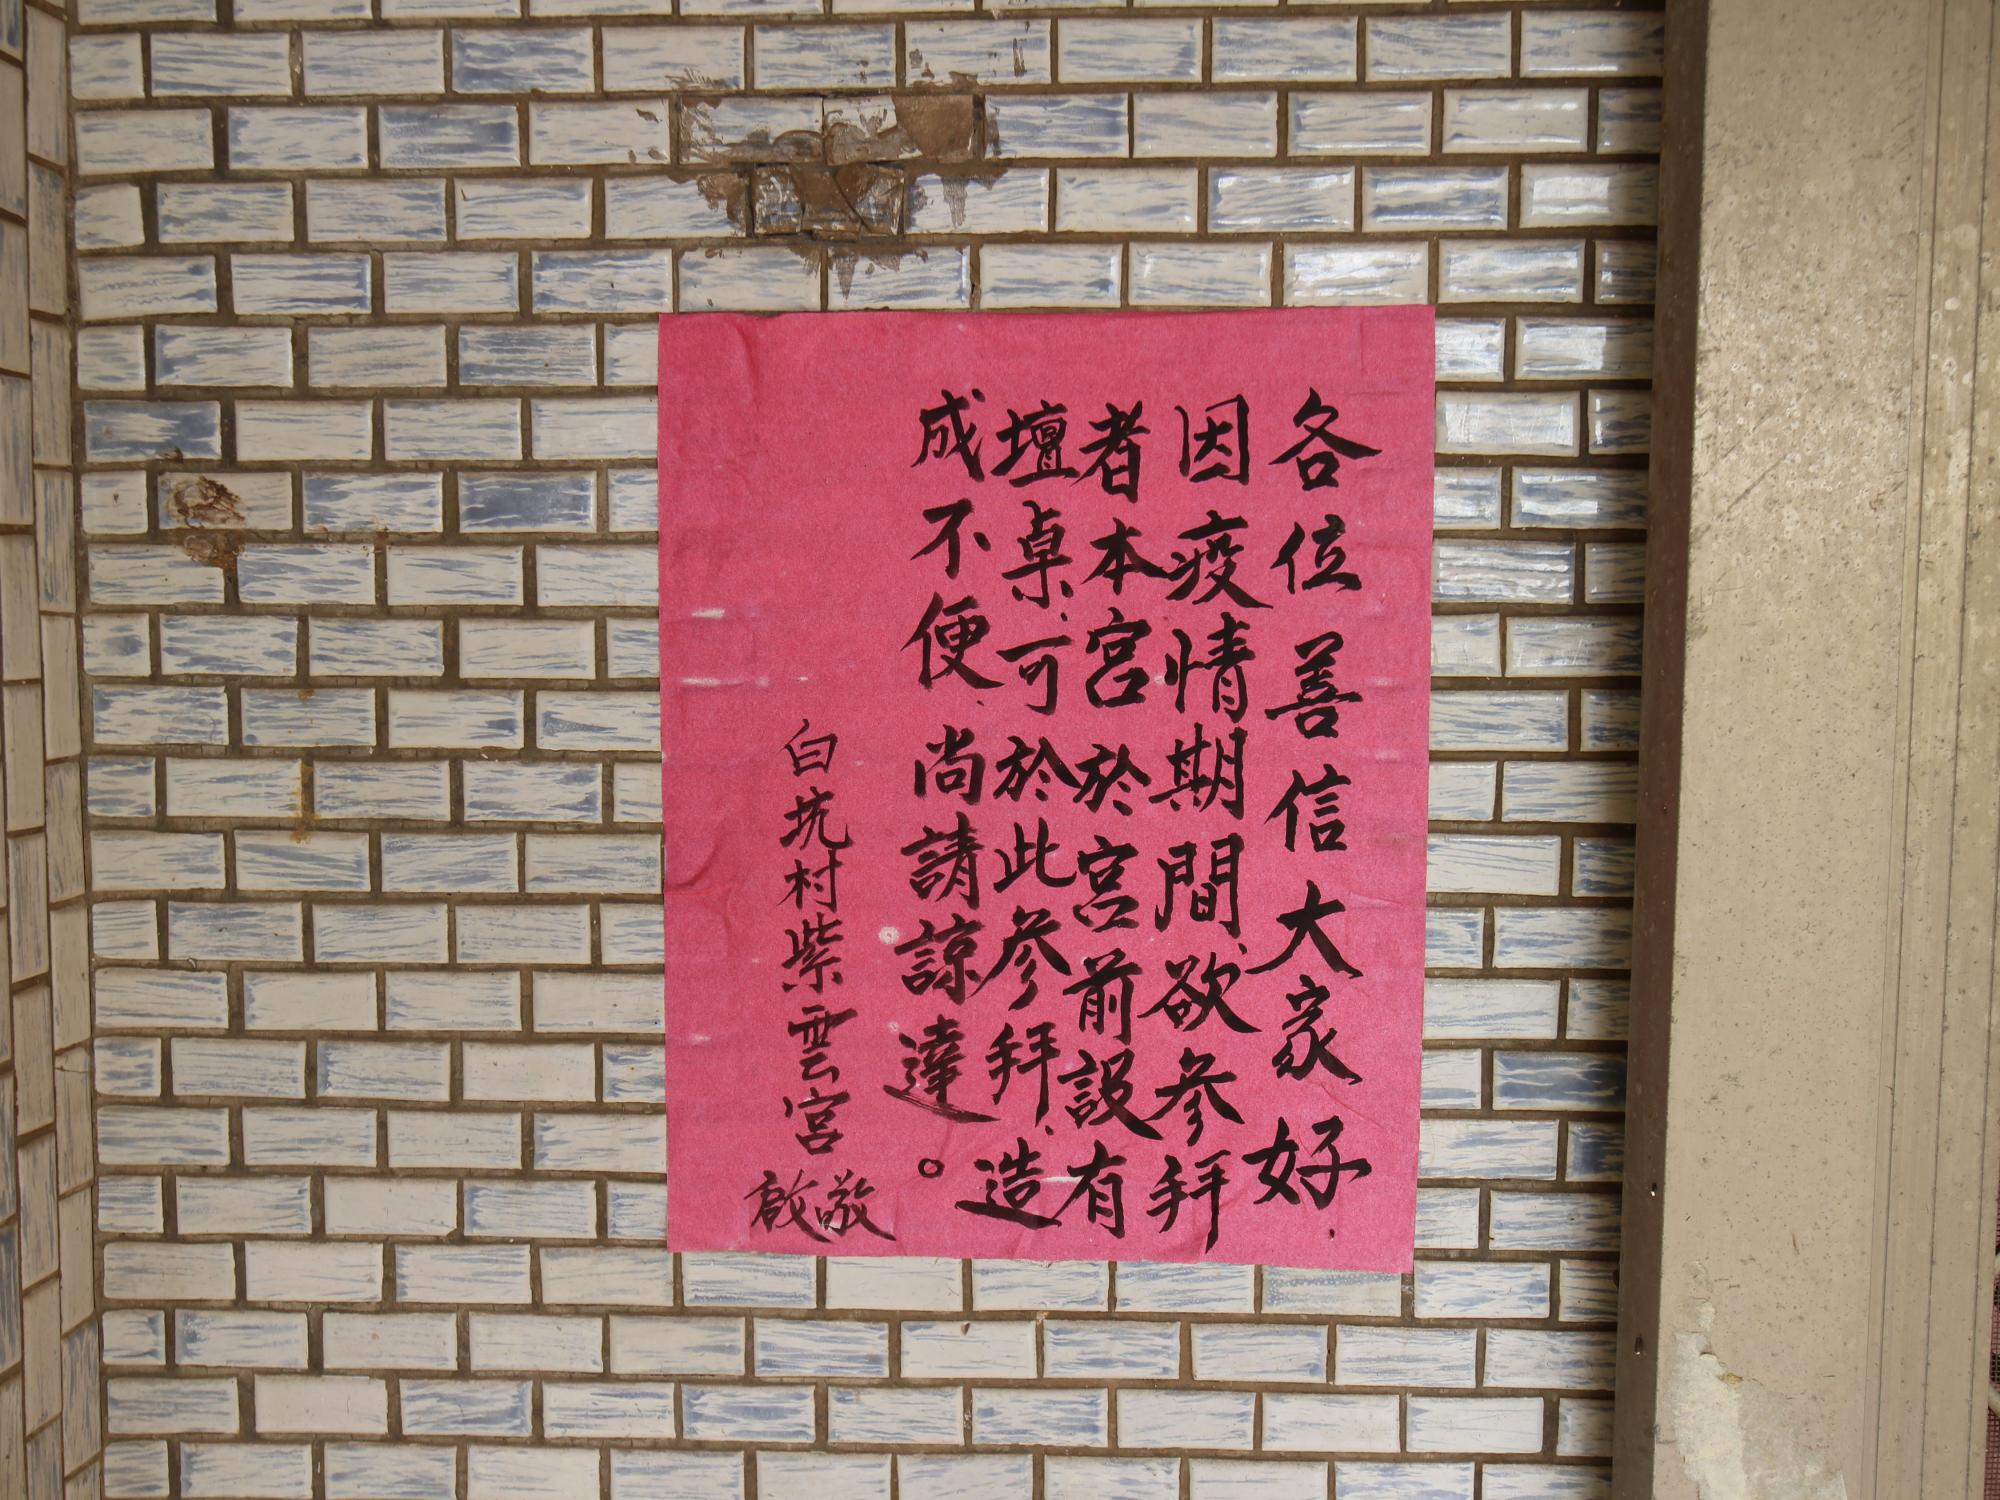 各位善信大家好.
因疫情期間、欲參拜
者本宮於宮前設有
壇桌、可於此參拜、造
成不便、尚請諒達。
白坑村紫雲宮敬啟